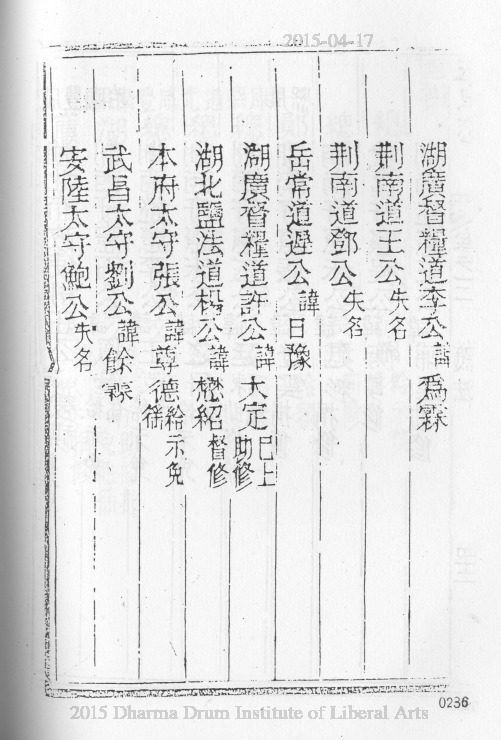 2015-04-17
湖廣督糧道李公諱爲霖
荆南道王公失名
荆南道鄧公失名
岳常道遲公諱日豫
湖廣督糧道許公諱大定已上助修
湖北鹽法道楊公諱懋紹督修
本府太守張公諱尊德給示免徭
武昌太守劉公諱餘霖
安陸太守鮑公失名
0236
2015 Dharma Drum Institute of Liberal Arts